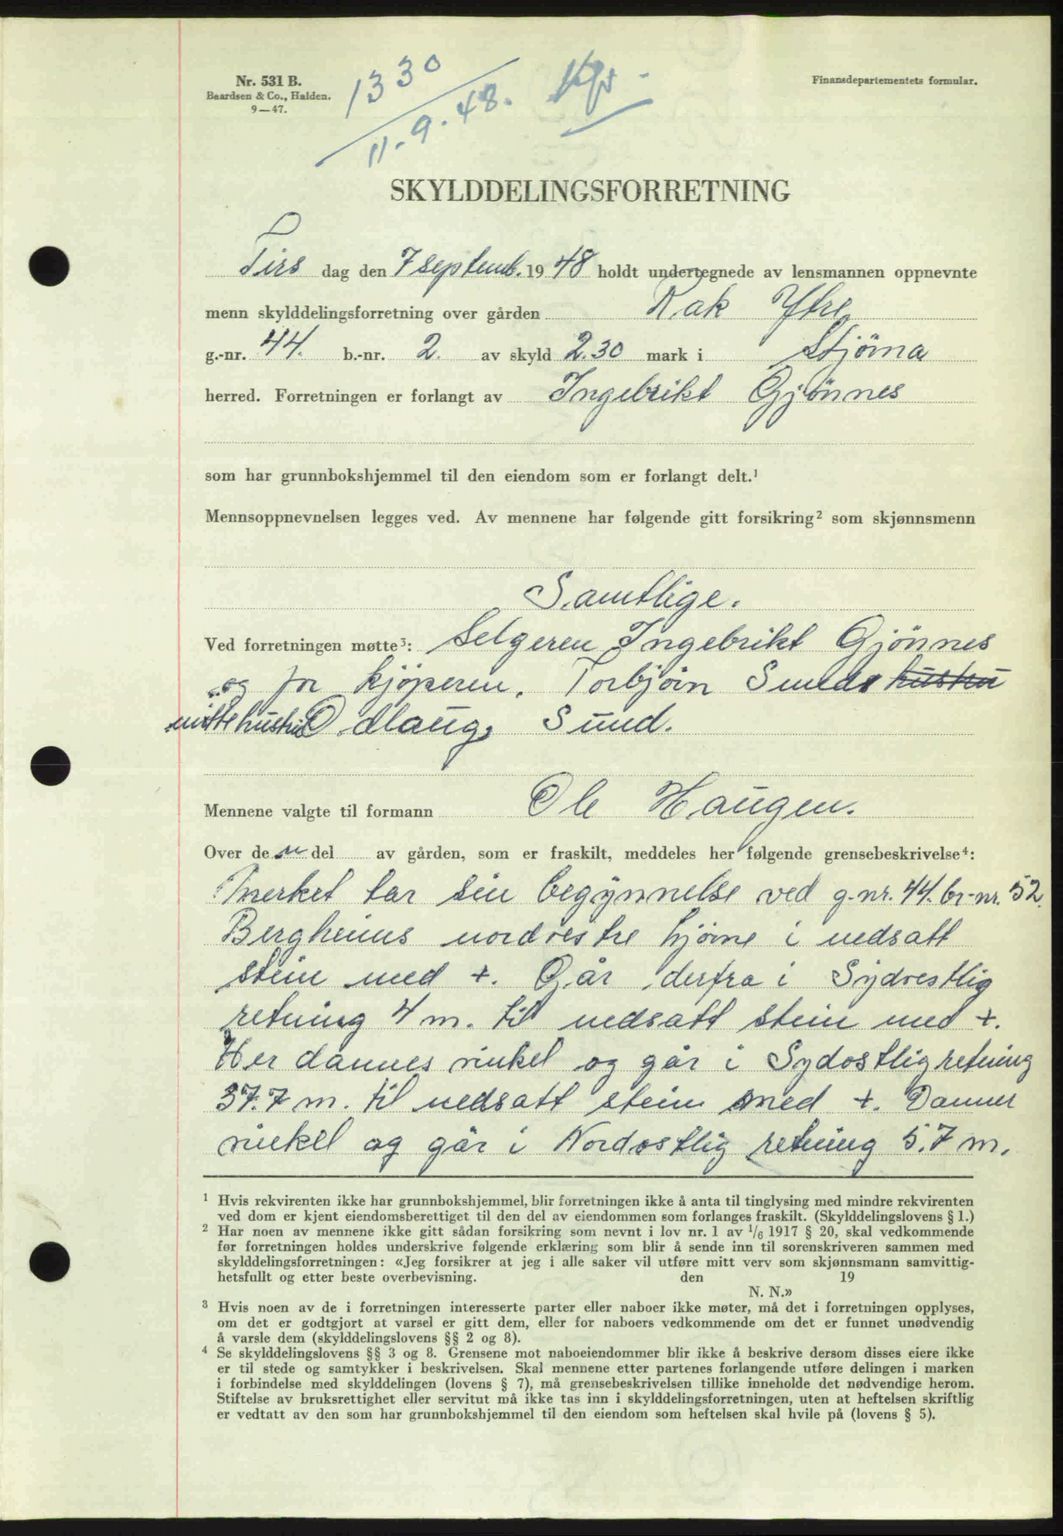 Nr. 531 B.
Baardsen & Co., Halden.
9—47.
1330
11-9-48.
Finansdepartementets formular.
SKYLDDELINGSFORRETNING
Tirs dag den 7 septemb. 1948 holdt undertegnede av lensmannen oppnevnte
menn skylddelingsforretning over gården Rak Ytre
g.-nr. 44. b.-nr. 2. av skyld 2.30 mark i Stjørna
herred. Forretningen er forlangt av Ingebrikt Gjönnes
som har grunnbokshjemmel til den eiendom som er forlangt delt.¹
Mennsoppnevnelsen legges ved. Av mennene har følgende gitt forsikring² som skjønnsmenn
Samtlige.
Ved forretningen møtte³: Selgeren Ingebrikt Gjönnes
og for kjöperen. Torbjörn Sunds hustru
Odlaug Sund.
Mennene valgte til formann Ole Haugen.
Over den del av gården, som er fraskilt, meddeles her følgende grensebeskrivelse⁴:
Merket tar sin begynnelse ved g.nr. 44. br-nr. 52.
Bergheims nordvestre hjörne i nedsatt
stein med +. Går derfra i Sydvestlig
retning 4 m. til nedsatt stein med +.
Her dannes vinkel og går i Sydostlig retning
37.7 m. til nedsatt stein med +. Danner
vinkel og går i Nordostlig retning 5.7 m.
¹ Hvis rekvirenten ikke har grunnbokshjemmel, blir forretningen ikke å anta til tinglysing med mindre rekvirenten
ved dom er kjent eiendomsberettiget til den del av eiendommen som forlanges fraskilt. (Skylddelingslovens § 1.)
² Har noen av mennene ikke gitt sådan forsikring som nevnt i lov nr. 1 av ¹/₆ 1917 § 20, skal vedkommende
før forretningen holdes underskrive følgende erklæring som blir å sende inn til sorenskriveren sammen med
skylddelingsforretningen: «Jeg forsikrer at jeg i alle saker vil utføre mitt verv som skjønnsmann samvittig-
hetsfullt og etter beste overbevisning. den 19
N. N.»
³ Hvis noen av de i forretningen interesserte parter eller naboer ikke møter, må det i forretningen opplyses,
om det er godtgjort at varsel er gitt dem, eller for naboers vedkommende om det er funnet unødvendig
å varsle dem (skylddelingslovens §§ 2 og 8).
⁴ Se skylddelingslovens §§ 3 og 8. Grensene mot naboeiendommer blir ikke å beskrive dersom disses eiere ikke
er til stede og samtykker i beskrivelsen. Skal mennene etter partenes forlangende utføre delingen i marken
i forbindelse med skylddelingen (lovens § 7), må grensebeskrivelsen tillike inneholde det nødvendige herom.
Stiftelse av bruksrettighet eller servitut må ikke tas inn i skylddelingsforretningen, uten at heftelsen skriftlig
er vedtatt av den som har grunnbokshjemmel til den eiendom som heftelsen skal hvile på (lovens § 5).